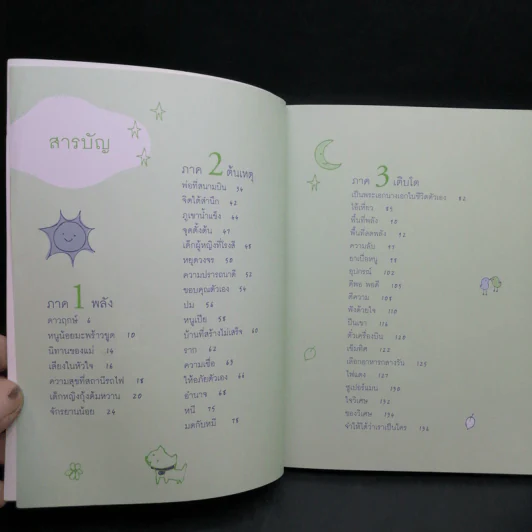 สารบัญ
ภาค 1 พลัง
ดาวฤกษ์ 6
หนูน้อยมะพร้าวขูด 10
นิทานของแม่ 14
เตียงในหัวใจ 16
ความสุขที่สถานีรถไฟ 18
เด็กหญิงกุ้งต้มหวาน 20
จักรยานน้อย 24
ภาค 2 ต้นเหตุ
พ่อที่สนามบิน 34
จิตใต้สำนึก 42
ภูเขาน้ำแข็ง 44
จุดตั้งต้น 45
เด็กผู้หญิงที่ไร้สี 48
หยุดวงจร 50
ความปรารถนาดี 52
ขอบคุณตัวเอง 54
ปม 56
หนูเปีย 58
บ้านที่สร้างไม่เสร็จ 60
ราก 62
ความเชื่อ 63
ให้อภัยตัวเอง 64
อำนาจ 68
หนี 75
มดกับหมี 78
ภาค 3 เติบโต
เป็นพระเอกนางเอกในชีวิตตัวเอง 82
ไร้เดียว 85
พื้นที่พลัง 90
พื้นที่ลดพลัง 92
ความลับ 97
ยาเบื่อหนู 99
อุปกรณ์ 102
ดีพอ พอดี 105
ตีความ 108
ฟังด้วยใจ 110
ปีนเขา 116
ตั๋วเครื่องบิน 118
เข็มทิศ 122
เลือกอาหารกลางวัน 125
ไฟแดง 127
ซูเปอร์แมน 130
ใจวิเศษ 132
ของวิเศษ 134
จำให้ได้ว่าเราเป็นใคร 136